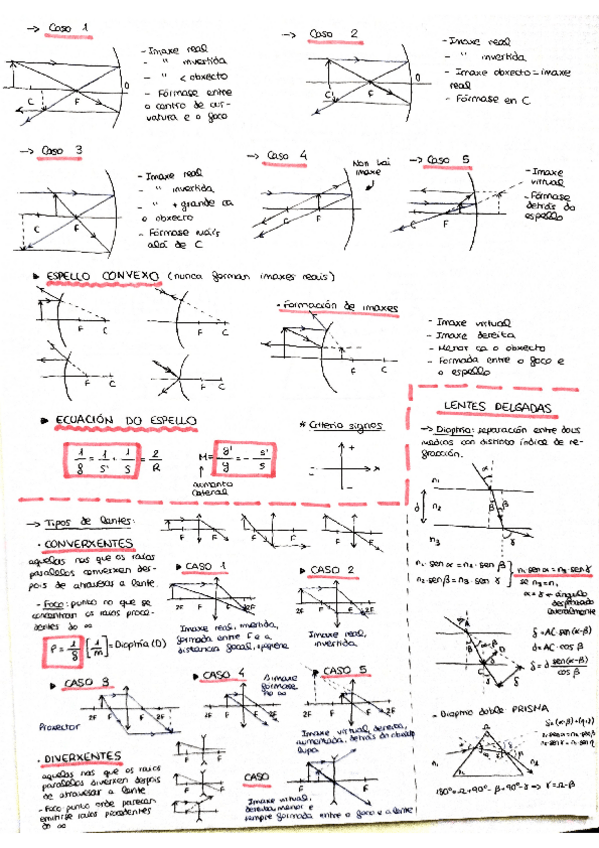 → Caso 1
- Imaxe real
- " invertida
- " < obxecto
- Fórmase entre
o centro de cur-
vatura e o foco
C F O
→ Caso 2
- Imaxe real
- " invertida
- Imaxe obxecto = imaxe
real
- Fórmase en C
C F
→ Caso 3
- Imaxe real
- " invertida
- " + grande ca
o obxecto
- Fórmase máis
alá de C
C F
→ Caso 4
Non hai
imaxe
F
→ Caso 5
- Imaxe
virtual
- Fórmase
detrás do
espello
F
▸ ESPELLO CONVEXO (nunca forman imaxes reais)
F C
F C
F C
F C
· Formación de imaxes
F C
- Imaxe virtual
- Imaxe dereita
- Menor ca o obxecto
- Formada entre o foco e
o espello
▸ ECUACIÓN DO ESPELLO
1/f = 1/s' + 1/s = 2/R
M = y'/y = - s'/s
aumento
lateral
* Criterio signos
+
- x
-
LENTES DELGADAS
→ Dioptrio: separación entre dous
medios con distinto índice de re-
fracción.
n₁
α
d
n₂
β β
n₃
γ
n₁ · sen α = n₂ · sen β
n₂ · sen β = n₃ · sen γ
n₁ sen α = n₃ · sen γ
se n₃ = n₁
α = γ → ángulo
desprazado
lateralmente
A
α-β
C
δ
δ = AC · sen(α-β)
d = AC · cos β
δ = d sen(α-β)/cos β
- Dioptrio doble PRISMA
n₁ n₂ n₁
→ Tipos de lentes:
· CONVERXENTES
aquelas nas que os raios
paralelos converxen des-
pois de atravesar a lente.
- Foco: punto no que se
concentran os raios proce-
dentes do ∞
P = 1/f [1/m] = Dioptría (D)
▸ CASO 1
2F F F 2F
Imaxe real, invertida,
formada entre F e a
distancia focal, +pequena
▸ CASO 2
2F F F 2F
Imaxe real,
invertida.
▸ CASO 3
2F F F 2F
Proxector
▸ CASO 4
2F F F 2F
A imaxe
fórmase
no ∞
▸ CASO 5
2F F F 2F
Imaxe virtual, dereita,
aumentada, detrás do obxecto
lupa
· DIVERXENTES
aquelas nas que os raios
paralelos diverxen despois
de atravesar a lente
- Foco punto onde parecen
emitirse raios procedentes
do ∞
CASO
Imaxe virtual,
dereita, menor e
sempre formada entre o foco e a lente!